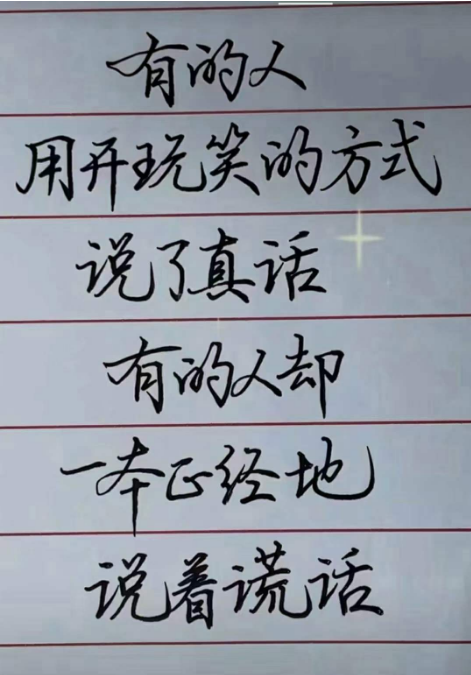 有的人
用开玩笑的方式
说了真话
有的人却
一本正经地
说着谎话